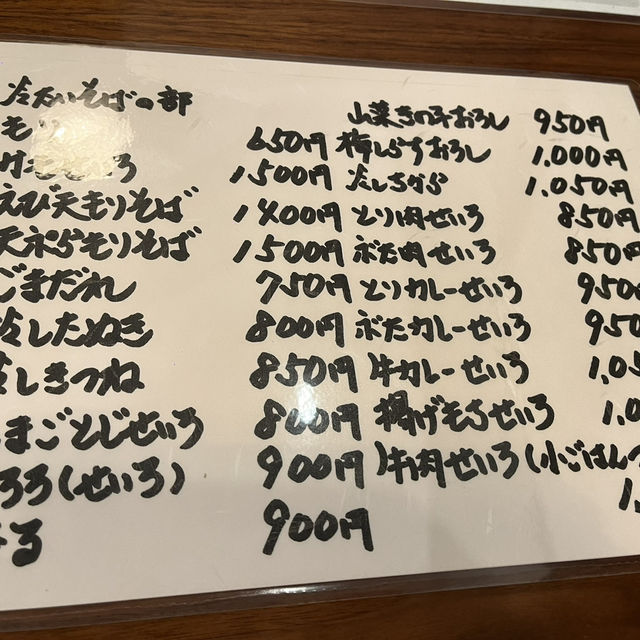 冷たいそばの部
もり 650円
1500円
えび天もりそば 1400円
天ぷらもりそば 1500円
ごまだれ 750円
冷したぬき 800円
冷しきつね 850円
たまごとじせいろ 800円
とろろ(せいろ) 900円
900円
山菜きの子おろし 950円
梅しらすおろし 1.000円
冷しちから 1.050円
とり肉せいろ 850円
ぶた肉せいろ 850円
とりカレーせいろ 950
ぶたカレーせいろ 950
牛カレーせいろ 1.05
揚げもちせいろ 1.0
牛肉せいろ(小ごはんつ
1.